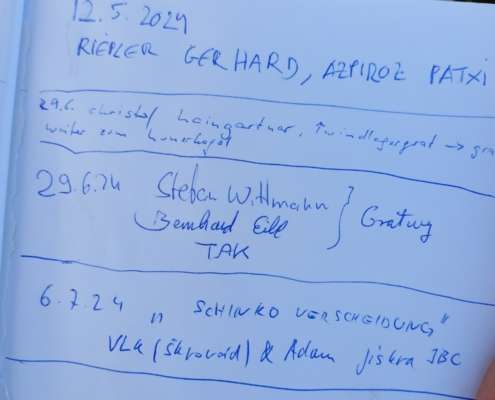 12.5.2024
RIEPLER GERHARD, AZPIROZ PATXI
29.6. christof haingartner, ↑windlegergrat → gra
weiter zum
29.6.24 Stefan Wittmann
Bernhard Eill } Gratweg
TAK
6.7.24 „SCHINKO VERSCHEIDUNG"
VLK (Škrovoid) & Adam Jiskra JBC